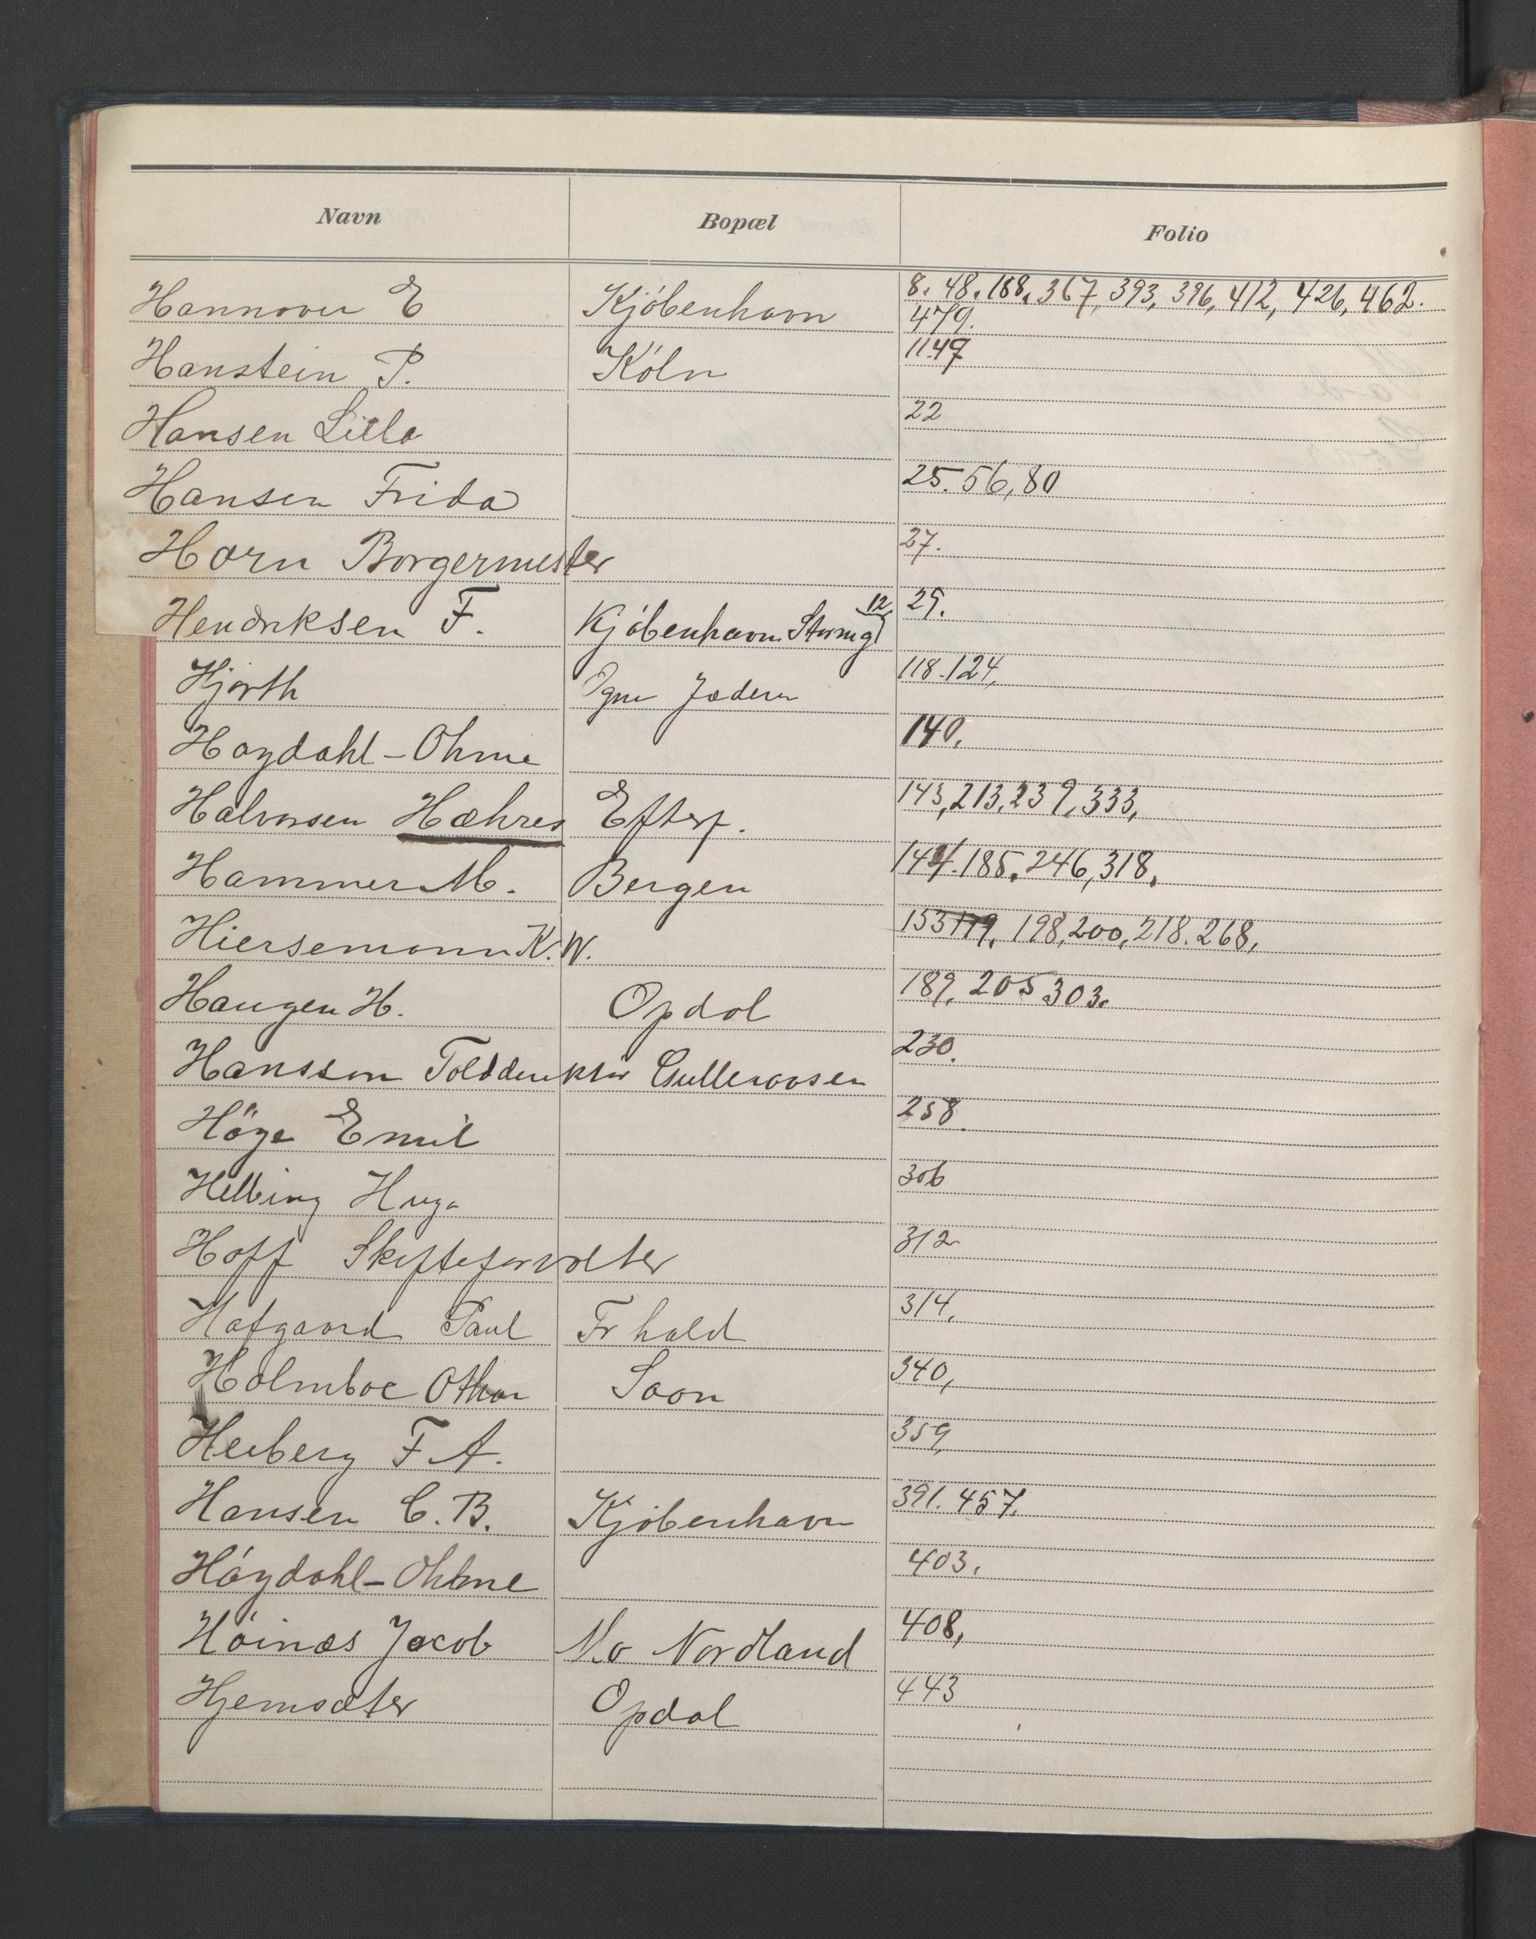 Navn Bopæl Folio
Hannover E Kjöbenhavn 8. 48. 188. 367, 393, 396, 412, 426, 462.
479.
Hanstein P. Köln 11.49
Hansen Lilla 22
Hansen Frida 25. 56, 80
Horn Borgermester 27.
Hendriksen F. Kjöbenhavn 12 29.
Hjorth Ogne Jæderen 118. 124,
Hoydahl-Ohme 140.
Halvorsen Hæhres Efterf. 143, 213. 239, 333,
Hammer M. Bergen 144. 185. 246, 318.
Hiersemann K. W. 153 179. 198, 200, 218. 268,
Haugen H. Opdal 189. 205 303.
Hansson Tolddirektör Gulleraasen 230.
Höye Emil 258.
Helbing Hugo 306
Hoff Skifteforvalter 312
Hafgaard Paul Fr hald 314.
Holmboe Othar Soon 340,
Heiberg F A. 359,
Hansen C. B. Kjöbenhavn 391. 457.
Höydahl-Ohlme 403.
Höinæs Jacob Mo Nordland 408,
Hjemsæter Opdal 443